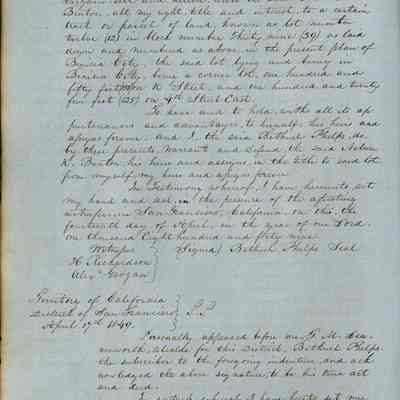 Benton, all my right, title and interest, to a certain
tract or parcel of land, known as lot number
twelve (12) in block number thirty nine (39) as laid
down and numbered as above, in the present plan of
Benicia City, the said lot lying and being in
Benicia City, being a corner lot, one hundred and
fifty feet on K Street, and one hundred and twenty
five feet (125) on 4th street East.
To have and to hold, with all its ap
purtenances and advantages to himself, his heirs and
assigns forever. And I, the said Bethuel Phelps, do
by these presents, warrant and defend, the said Nelson
K. Benton, his heirs and assigns, in the title to said lot,
from myself, my heirs and assigns forever
In Testimony whereof, I have hereunto, set
my hand and seal, in the presence of the attesting
witnesses, in San Francisco, California, on this, the
fourteenth day of April, in the year of our Lord,
one thousand Eight hundred and forty nine.
Witnesses } (Signed) Bethuel Phelps Seal
H Richardson
Alexr Grogan
Territory of California
District of San Francisco } S.S.
April 17th 1849.
Personally appeared before me,
Alcalde for this District, Bethuel Phelps,
the subscriber to the foregoing indenture, and ack
nowledged the above signature, to be his true act
and deed.
In witness whereof I have hereto set my